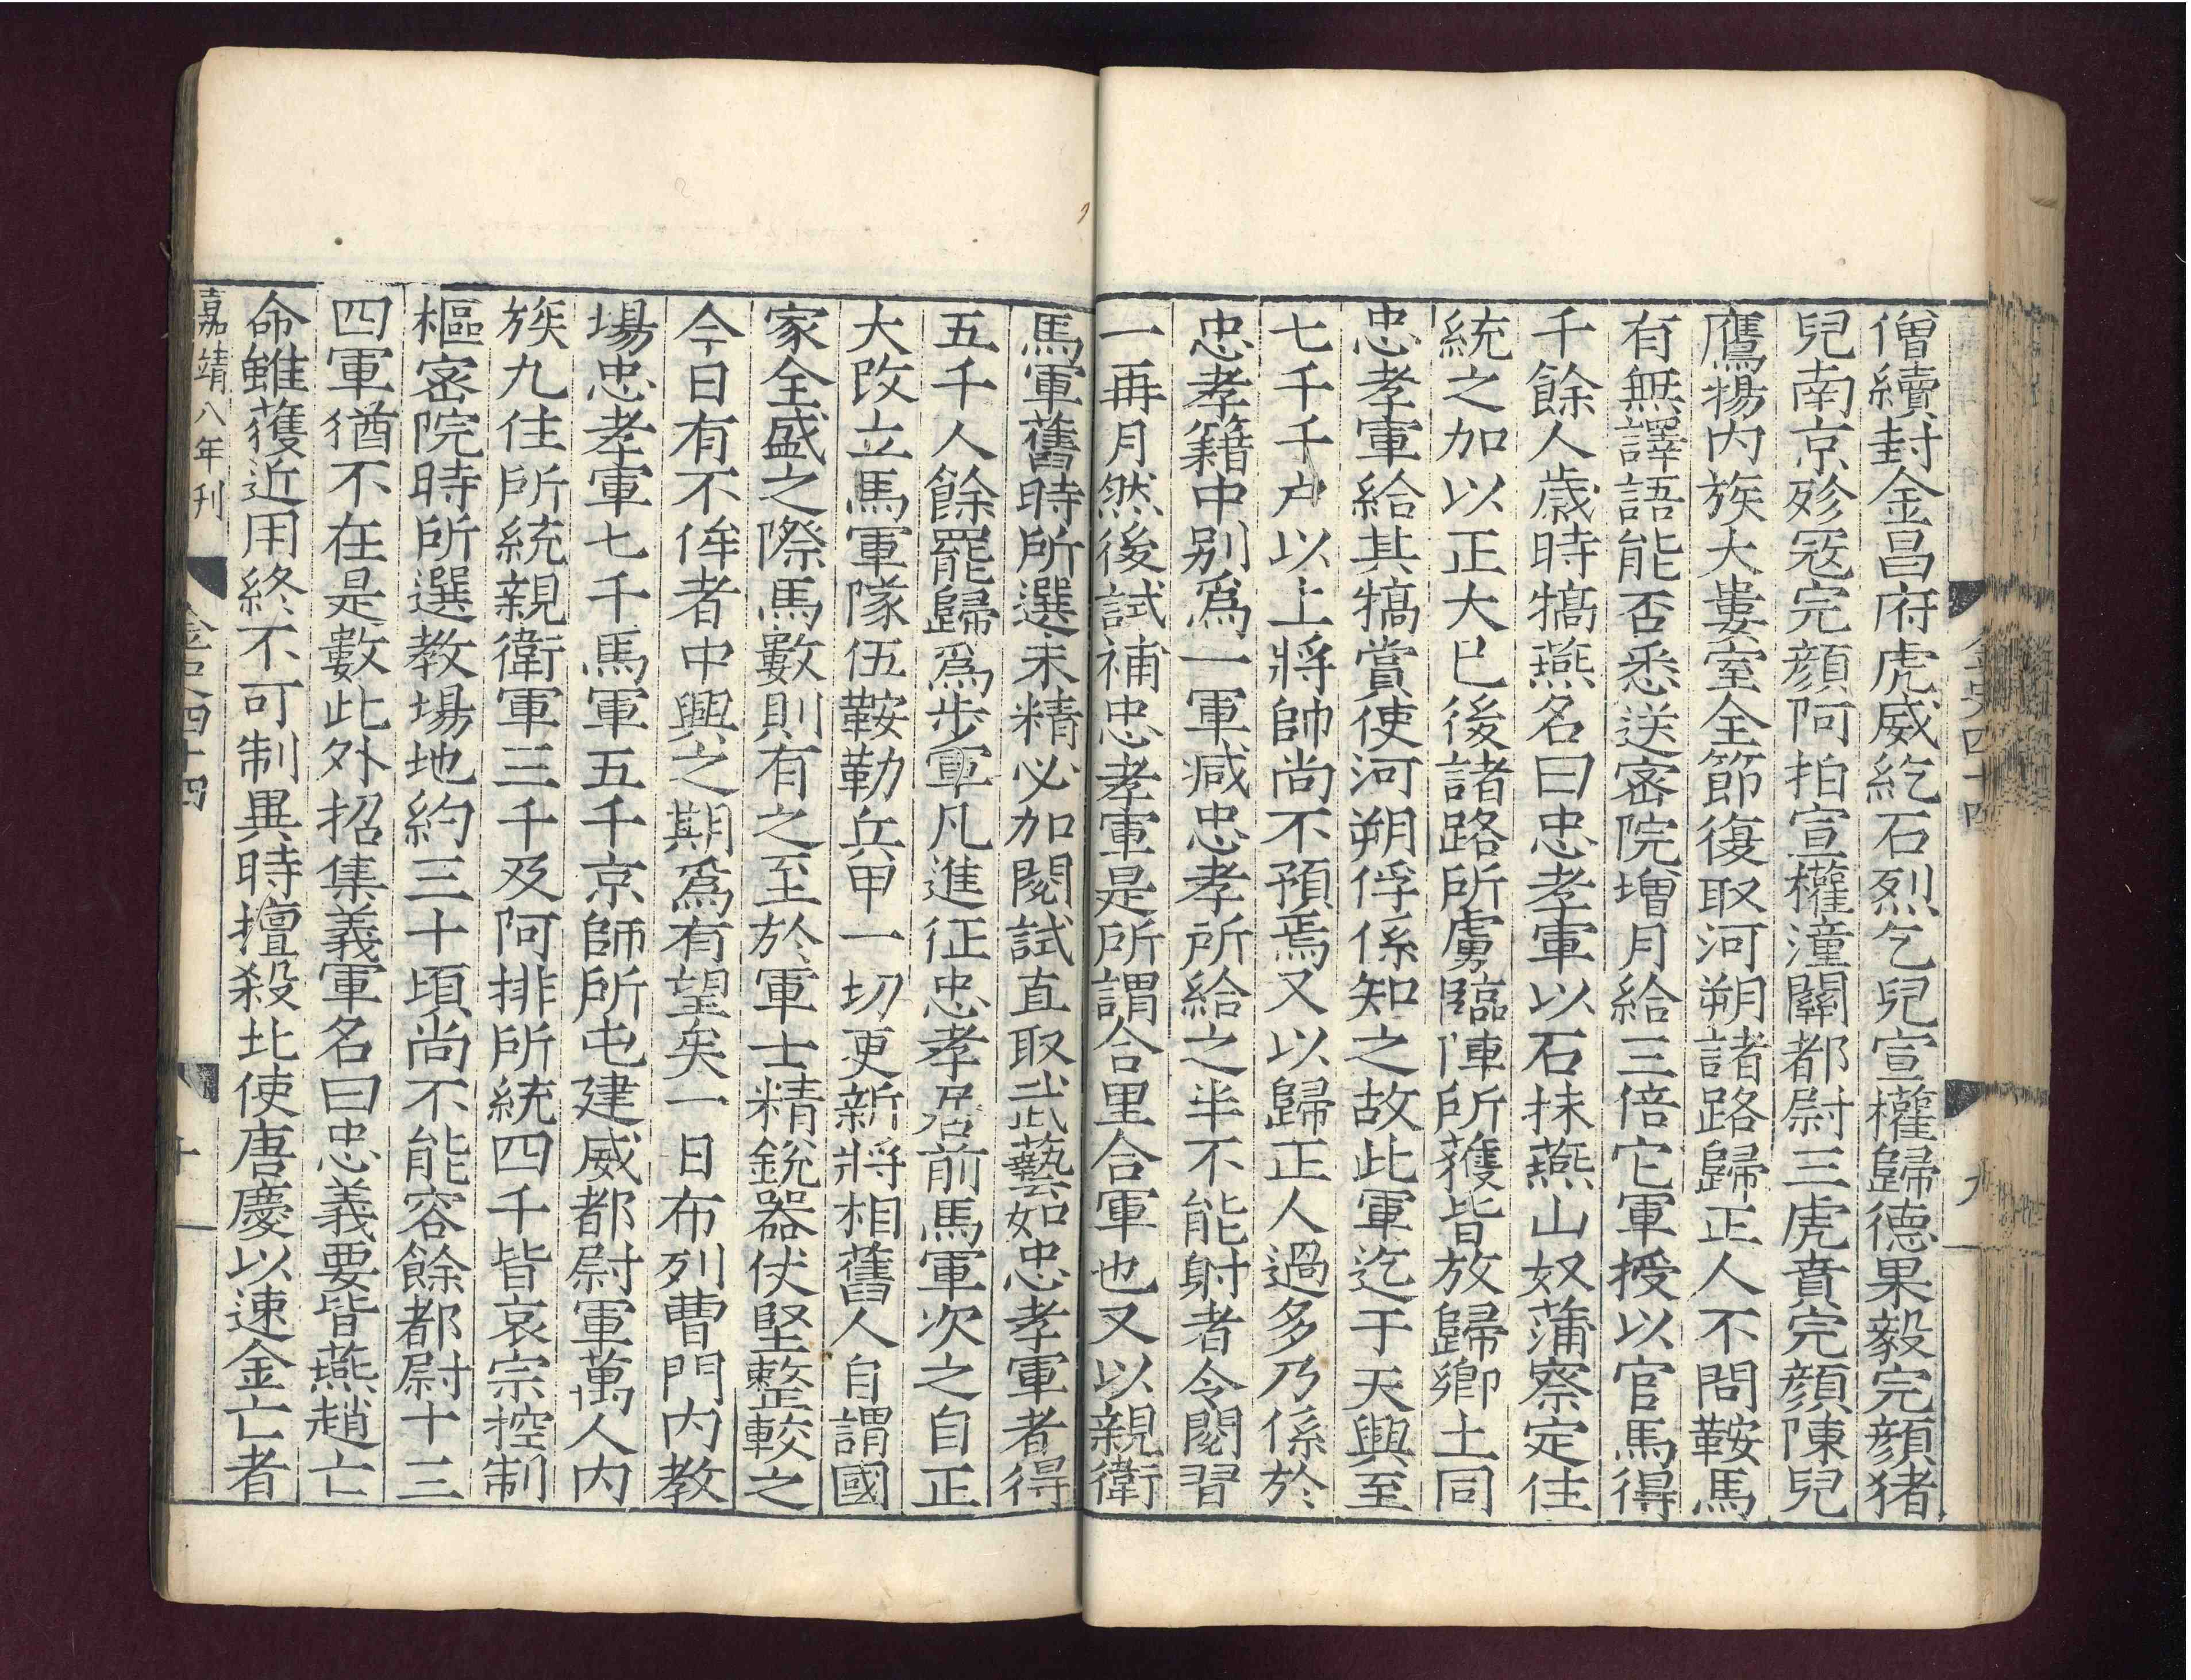 僧續封金昌府虎威紇石烈乞兒宣權歸德果毅完顔猪
兒南京殄冦完顔阿拍宣權潼關都尉三虎賁完顔陳兒
鷹揚内族大婁室全節復取河朔諸路歸正人不問鞍馬
有無譯語能否悉送宻院増月給三倍它軍授以官馬得
千餘人歳時犒燕名曰忠孝軍以石抹燕山奴蒲察定住
統之加以正大已後諸路所虜臨陣所獲皆放歸鄉土同
忠孝軍給其犒賞使河朔俘係知之故此軍迄于天興至
七千千户以上將帥尚不預焉又以歸正人過多乃係於
忠孝籍中别爲一軍减忠孝所給之半不能射者令閱習
一再月然後試補忠孝軍是所謂合里合軍也又以親衛
馬軍舊時所選未精必加閱試直取武藝如忠孝軍者得
五千人餘罷歸爲步軍凡進征忠孝居前馬軍次之自正
大改立馬軍隊伍鞍勒兵甲一切更新將相舊人自謂國
家全盛之際馬數則有之至於軍士精銳器仗堅整較之
今日有不侔者中興之期爲有望矣一日布列曹門内教
場忠孝軍七千馬軍五千京師所屯建威都尉軍萬人内
族九住所統親衛軍三千及阿排所統四千皆哀宗控制
樞宻院時所選教場地約三十頃尚不能容餘都尉十三
四軍猶不在是數此外招集義軍名曰忠義要皆燕趙亡
命雖獲近用終不可制異時擅殺北使唐慶以速金亡者
嘉靖八年刊
金史四十四
十
金史四十四
九